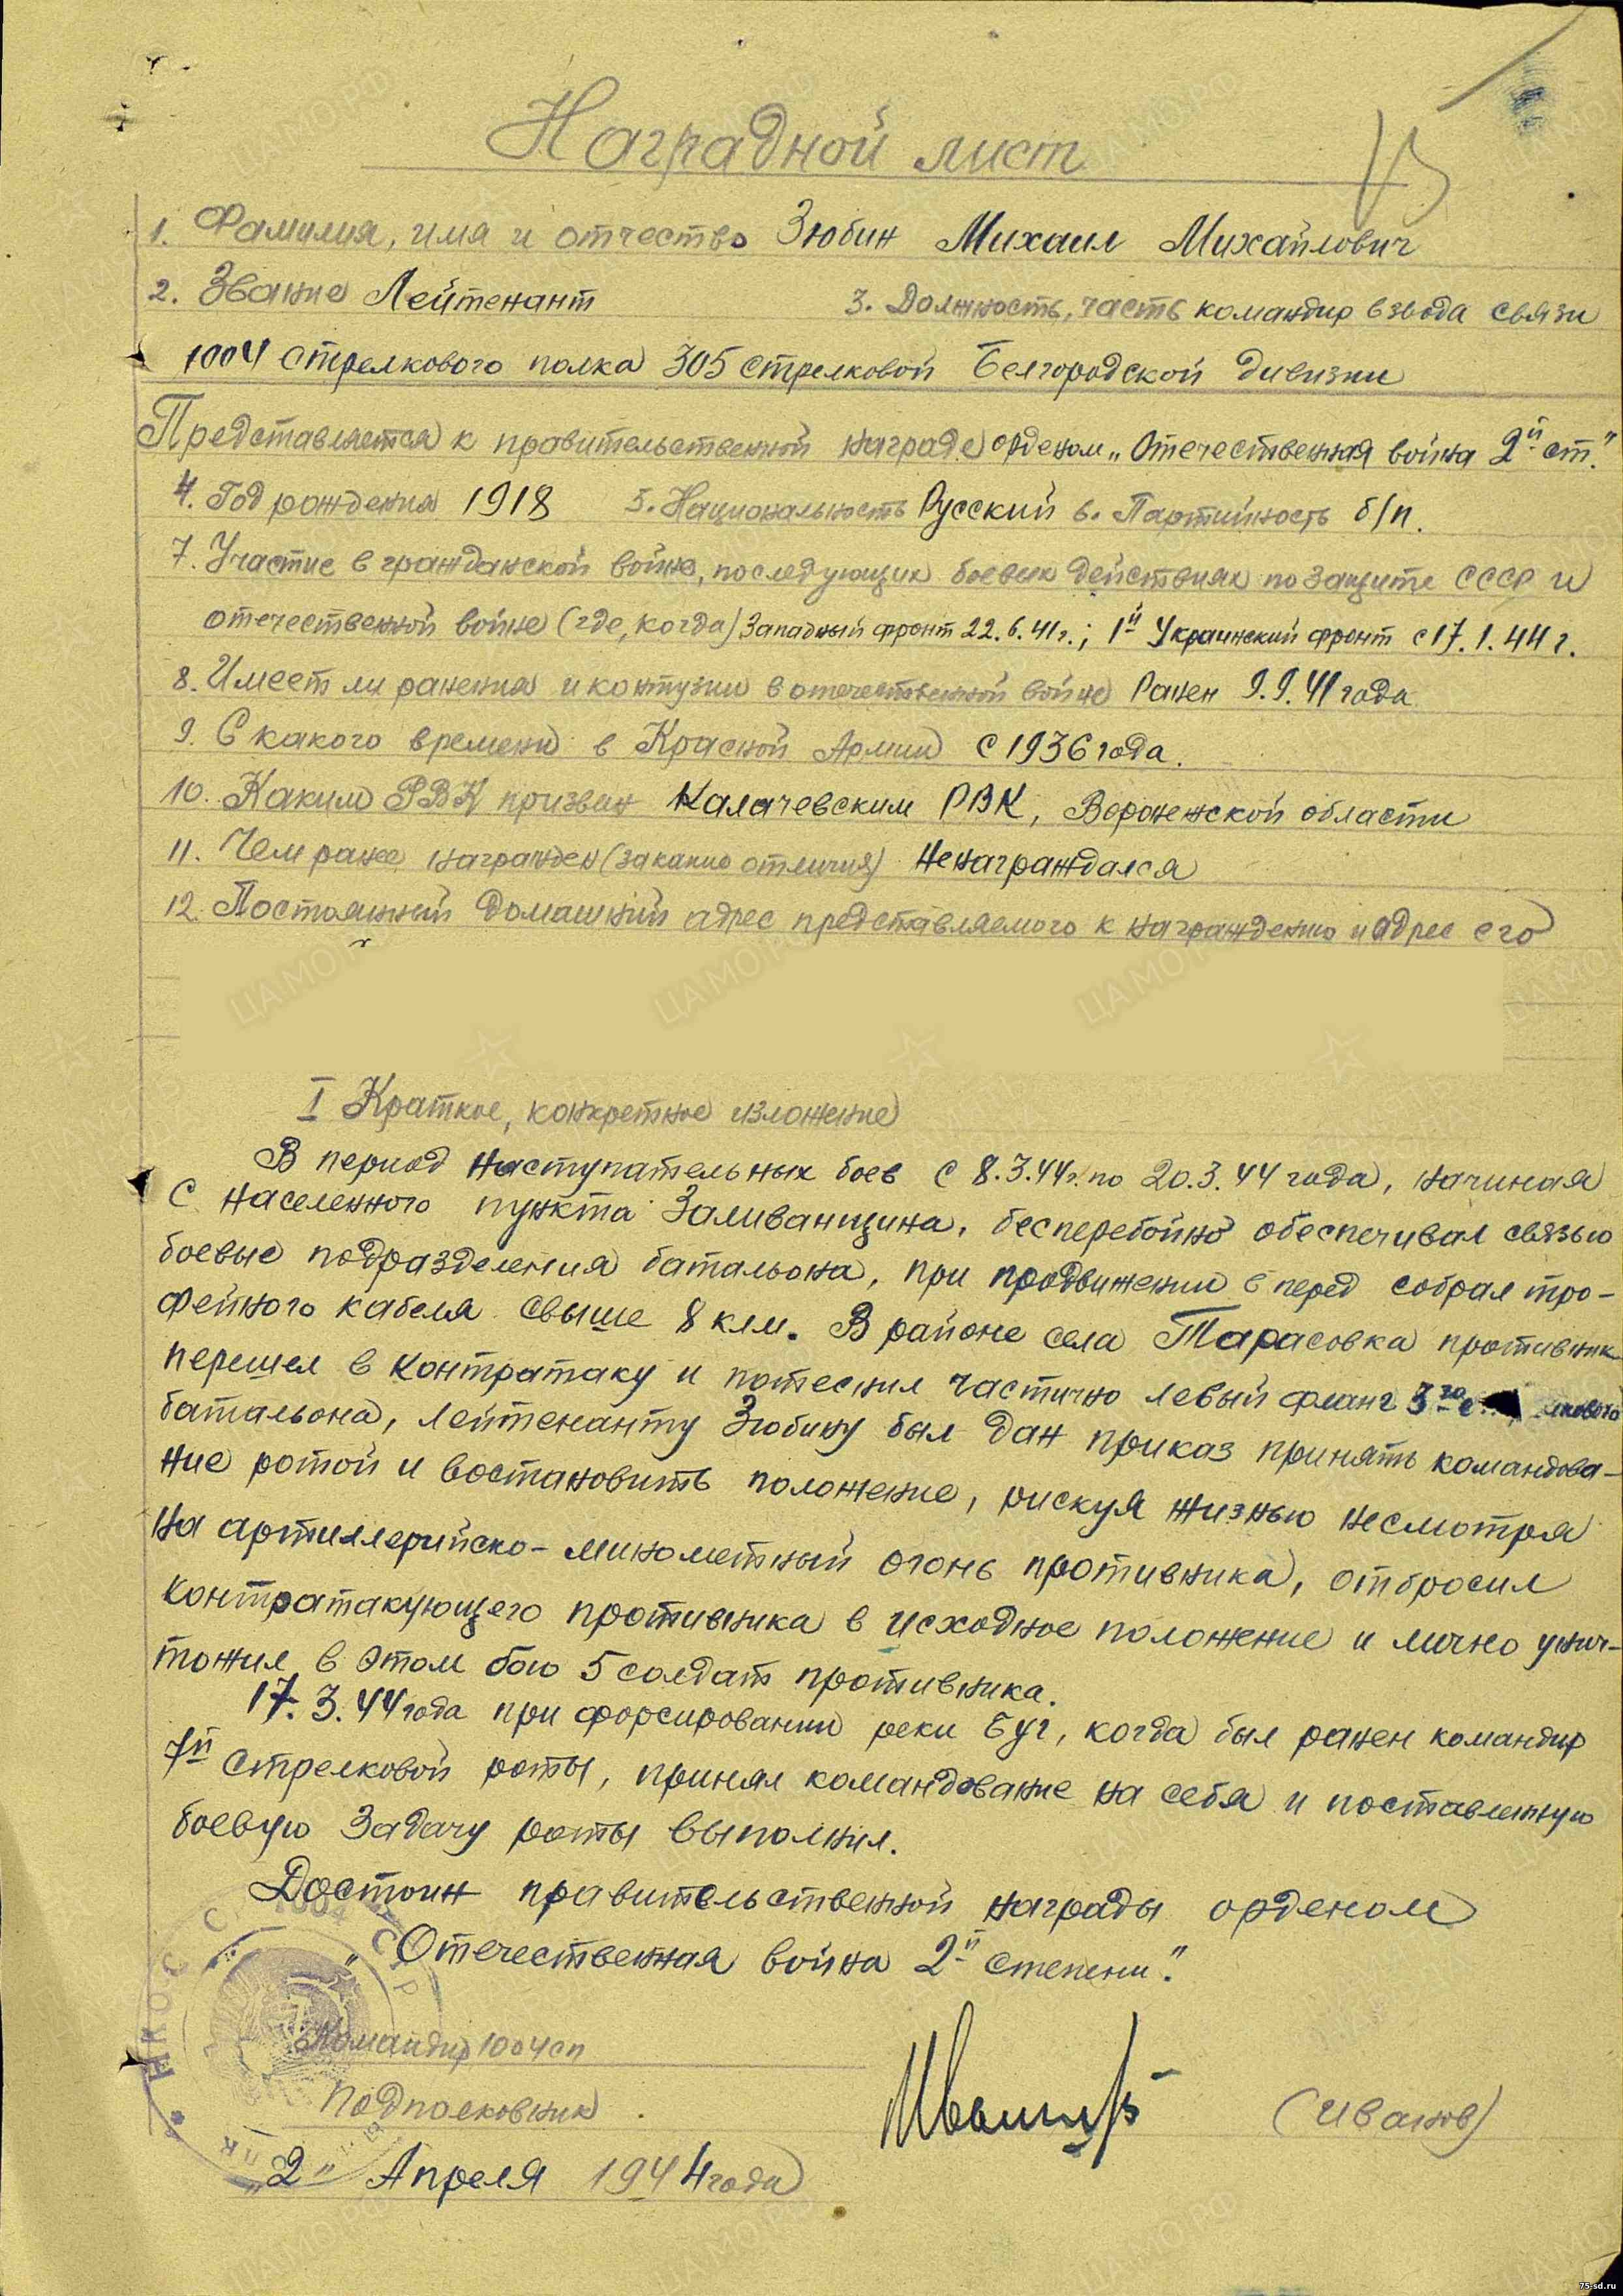 Наградной лист
1. Фамилия, имя и отчество Зюбин Михаил Михайлович
2. Звание Лейтенант 3. Должность, часть командир взвода связи
1004 стрелкового полка 305 стрелковой Белгородской дивизии
Представляется к правительственной награде орденом „Отечественная война 2й ст."
4. Год рождения 1918 5. Национальность Русский 6. Партийность б/п.
7. Участие в гражданской войне, последующих боевых действиях по защите СССР и
отечественной войне (где, когда) Западный фронт 22.6.41г.; 1й Украинский фронт с 17.1.44г.
8. Имеет ли ранения и контузии в отечественной войне Ранен 9.9.41 года
9. С какого времени в Красной Армии с 1936 года.
10. Каким РВК призван Калачевским РВК, Воронежской области
11. Чем ранее награжден (за какие отличия) Ненаграждался
12. Постоянный домашний адрес представляемого к награждению и адрес его
I Краткое, конкретное изложение
В период наступательных боев с 8.3.44г. по 20.3.44 года, начиная
с населенного пункта Заливанщина, бесперебойно обеспечивал связью
боевые подразделения батальона, при продвижении в перед собрал тро-
фейного кабеля свыше 8 клм. В районе села Тарасовка противник
перешел в контратаку и потеснил частично левый фланг 3го
батальона, лейтенанту Зюбину был дан приказ принять командова-
ние ротой и востановить положение, рискуя жизнью несмотря
на артиллерийско-минометный огонь противника, отбросил
контратакующего противника в исходное положение и лично унич-
тожил в этом бою 5 солдат противника.
17.3.44 года при форсировании реки Буг, когда был ранен командир
7й стрелковой роты, принял командование на себя и поставленную
боевую задачу роты выполнил.
Достоин правительственной награды орденом
„Отечественная война 2й степени".
Командир 1004 сп
Подполковник (Иванов)
„2" Апреля 1944 года
ЦАМО.РФ
75-sd.ru